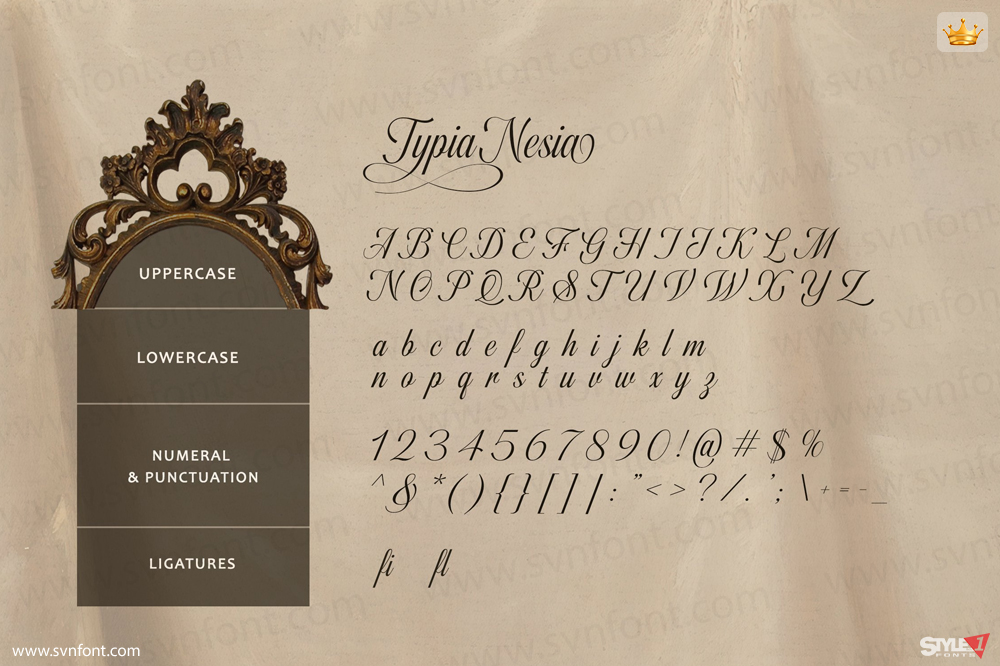 Typia Nesia
UPPERCASE
A B C D E F G H I J K L M
N O P Q R S T U V W X Y Z
LOWERCASE
a b c d e f g h i j k l m
n o p q r s t u v w x y z
NUMERAL
& PUNCTUATION
1 2 3 4 5 6 7 8 9 0 ! @ # $ %
^ & * ( ) { } [ ] | : " < > ? / . ' ; \ + = - _
LIGATURES
fi fl
www.svnfont.com
STYLE1
FONTS